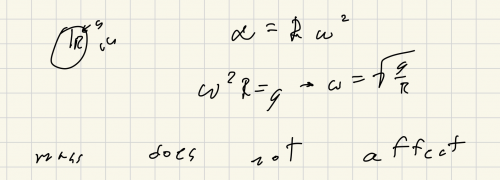 R g ω
α = R ω²
ω² R = g → ω = √(g/R)
mass does not affect